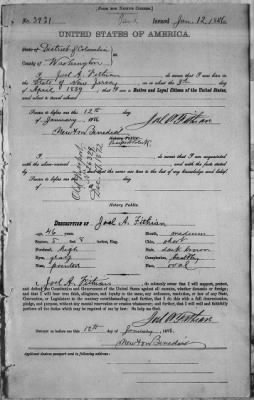 [FORM FOR NATIVE CITIZEN.]
No. 3931 Issued Jan. 12, 1886
UNITED STATES OF AMERICA.
State of District of Columbia
County of Washington
I, Joel A. Fithian, do swear that I was born in the
State of New Jersey, on or about the 3rd day
of April, 1839; that I am a Native and Loyal Citizen of the United States,
and about to travel abroad.
Sworn to before me this 12th day
of January 1886
Joel A. Fithian
Newton Benedict
Notary Public
Old Passport
Notary Public.
DESCRIPTION OF Joel A. Fithian
Age, 46 years Mouth, medium
Stature, 5 8 Chin, short
Forehead, high Hair, dark brown
Eyes, gray Complexion, healthy
Nose, pointed Face, oval
I, Joel A. Fithian, do solemnly swear that I will support, protect,
and defend the Constitution and Government of the United States against all enemies, whether domestic or foreign;
and that I will bear true faith, allegiance, and loyalty to the same, any ordinance, resolution, or law of any State,
Convention, or Legislature to the contrary notwithstanding; and further, that I do this with a full determination,
pledge, and purpose, without any mental reservation or evasion whatsoever; and further, that I will well and faithfully
perform all the duties which may be required of me by law: So help me God.
Joel A. Fithian
Sworn to before me this 12th day of January, 1886.
Newton Benedict
Applicant desires passport sent to following address: